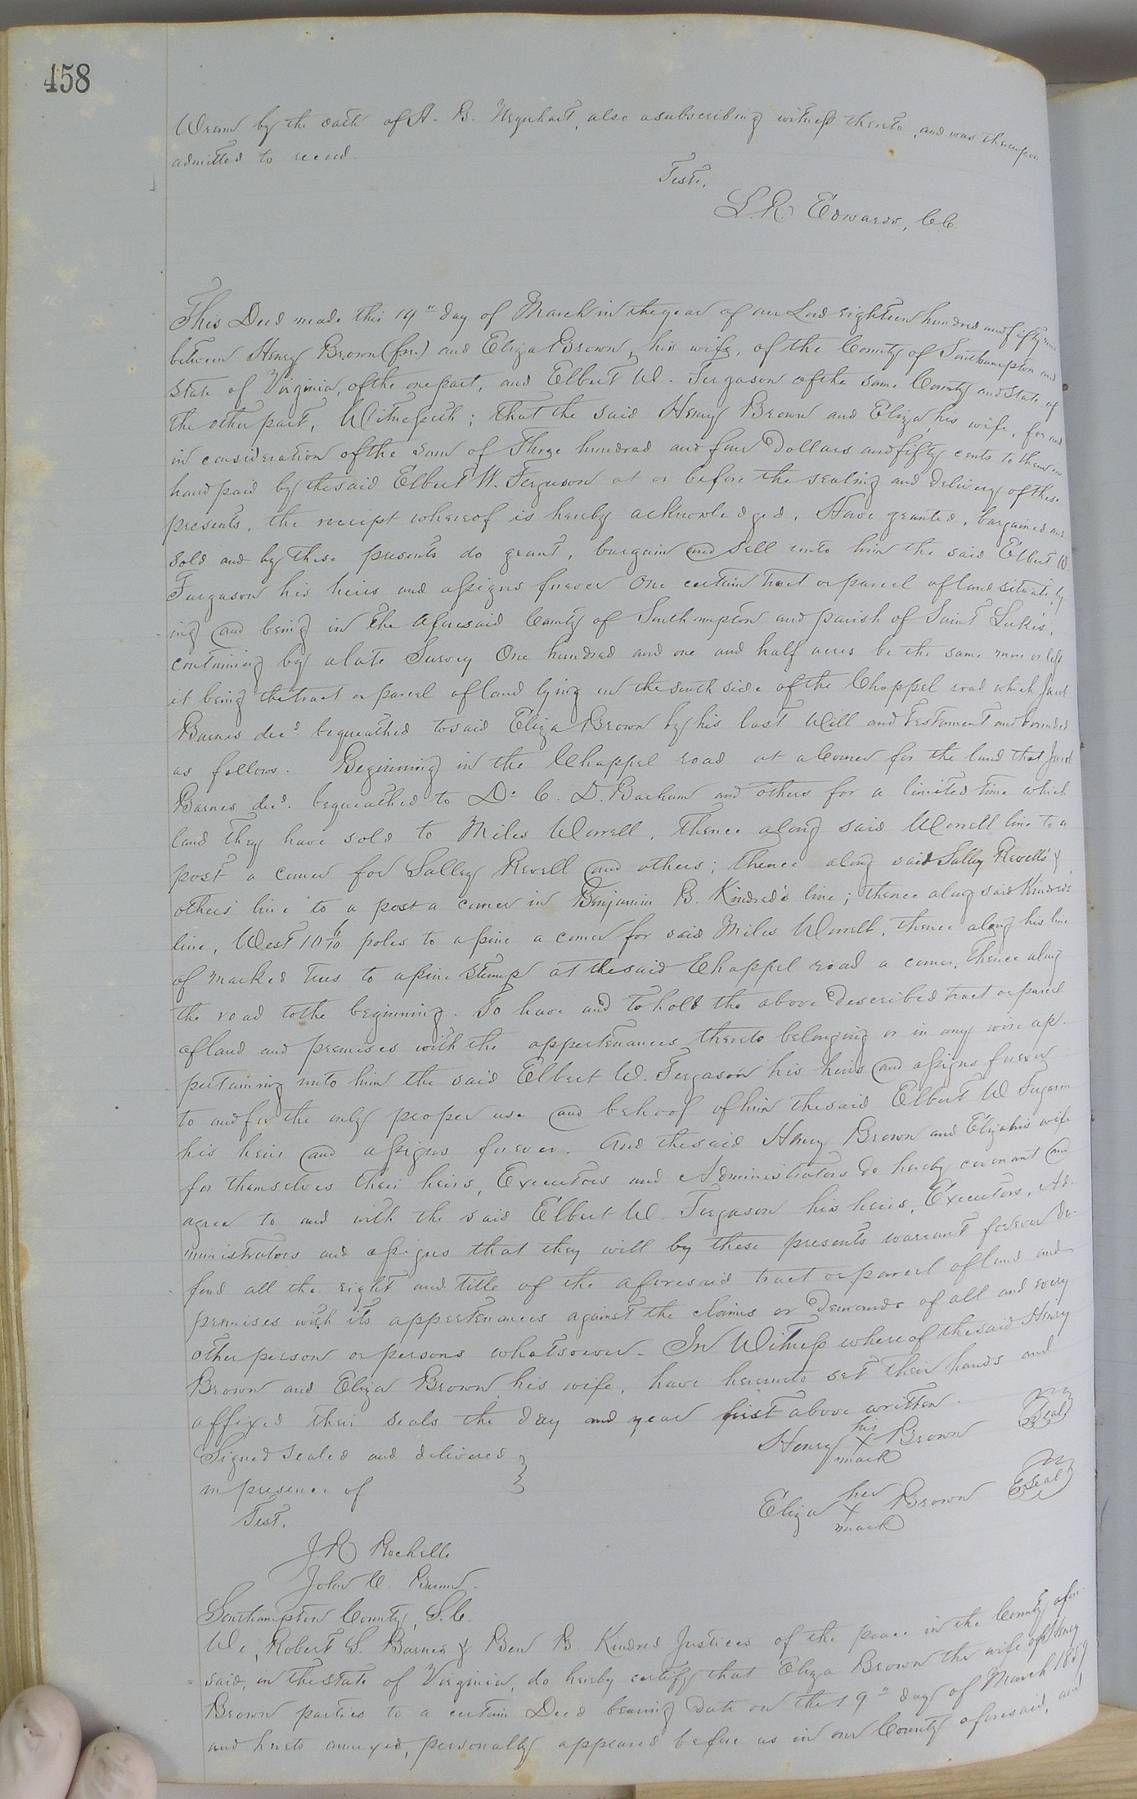 458
Urquhart, also a subscribing witness thereto, and was thereupon
admitted to record.
Teste,
L. R. Edwards, C.C.
This Deed made this 19th day of March in the year of our Lord eighteen hundred and fifty nine
between Henry Brown (fn.) and Eliza Brown, his wife, of the County of Southampton and
State of Virginia, of the one part, and Elbert W. Fergason of the same County and State of
the other part, Witnesseth; that the said Henry Brown and Eliza, his wife, for and
in consideration of the sum of Three hundred and four Dollars and fifty cents to them in
hand paid by the said Elbert W. Ferguson at or before the sealing and delivery of these
presents, the receipt whereof is hereby acknowledged, Have granted, bargained and
sold and by these presents do grant, bargain and sell unto him the said Elbert W
Furgason his heirs and assigns forever One certain tract or parcel of land situate, ly
ing and being in the aforesaid County of Southampton and parish of Saint Lukes,
containing by a late Survey One hundred and one and half acres be the same more or less
it being the tract or parcel of land lying on the south side of the Chappel road which Jacob
Barnes decd. bequeathed to said Eliza Brown by his last Will and testament and bounded
as follows. Beginning in the Chappel road at a corner for the land that Jacob
Barnes decd. bequeathed to Dr. C. D. Barham and others for a limited time which
land they have sold to Miles Worrell, thence along said Worrell line to a
post a corner for Salley Revell and others; thence along said Salley Revell's &
others' line to a post a corner in Benjamin B. Kindred's line; thence along said Kindreds
line, West 10 6/10 poles to a pine a corner for said Miles Worrell, thence along his line
of marked trees to a pine stump at the said Chappel road a corner, thence along
the road to the beginning. To have and to hold the above described tract or parcel
of land and premises with the appertenances thereto belonging or in any wise ap-
pertaining unto him the said Elbert W. Fergason his heirs and assigns forever
to and for the only proper use and behoof of him the said Elbert W Fergason
his heirs and assigns forever. And the said Henry Brown and Eliza his wife
for themselves their heirs, Executors and Administrators do hereby covenant and
agree to and with the said Elbert W. Fergason his heirs, Executors, Ad-
ministrators and assigns that they will by these presents warrant forever de-
fend all the right and title of the aforesaid tract or parcel of land and
premises with its appertenances against the claims or Demands of all and every
other person or persons whatsoever. In Witness whereof the said Henry
Brown and Eliza Brown, his wife, have hereunto set their hands and
affixed their seals the day and year first above written.
Signed sealed and delivered
in presence of
Test.
Henry his X mark Brown Seal
Eliza her X mark Brown Seal
J. R Rochelle
John
Southampton County, S.C.
We, Robert S. Barnes & Ben B. Kindred Justices of the peace in the County afore
said, in the state of Virginia, do hereby certify that Eliza Brown the wife of Henry
Brown parties to a certain Deed bearing date on the 19th day of March 1859
and hereto annexed, personally appeared before us in our County aforesaid, and